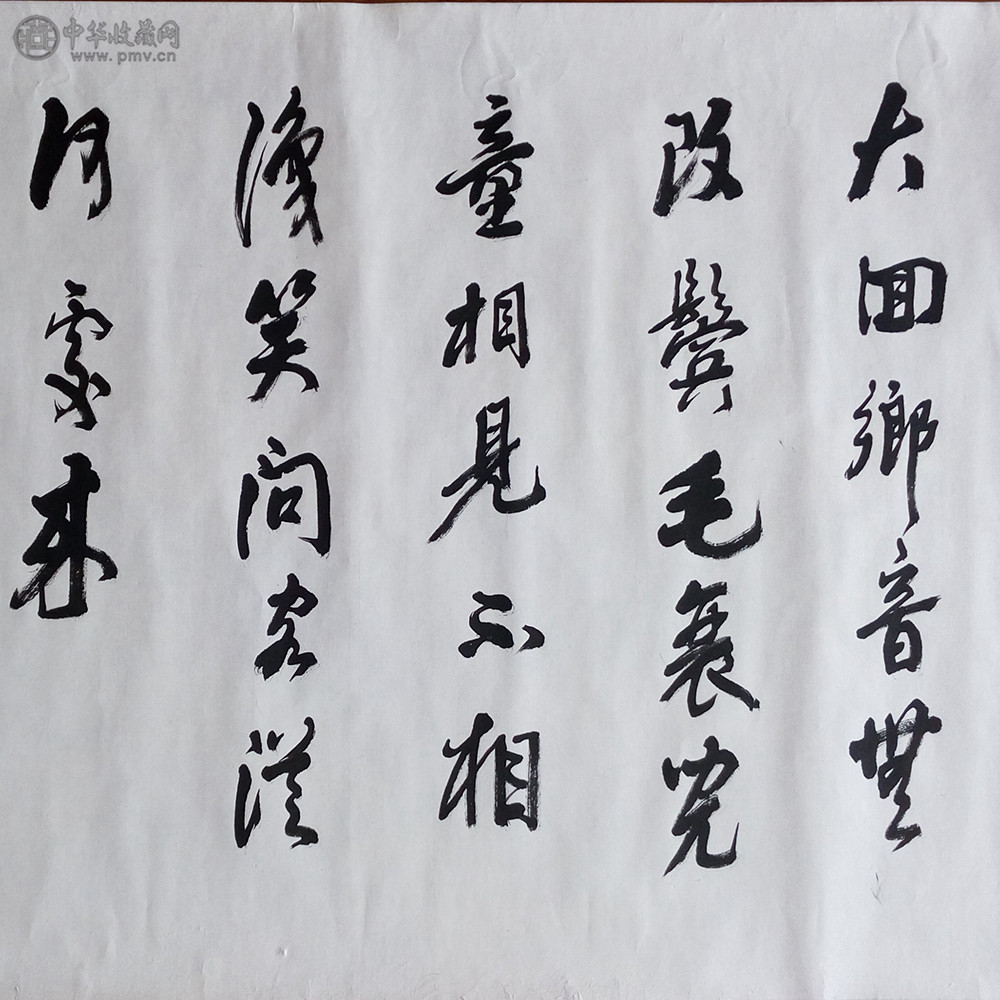 中华收藏网
www.pmv.cn
大囬鄉音無
改鬢毛衰兒
童相見不相
識笑問客從
何處來